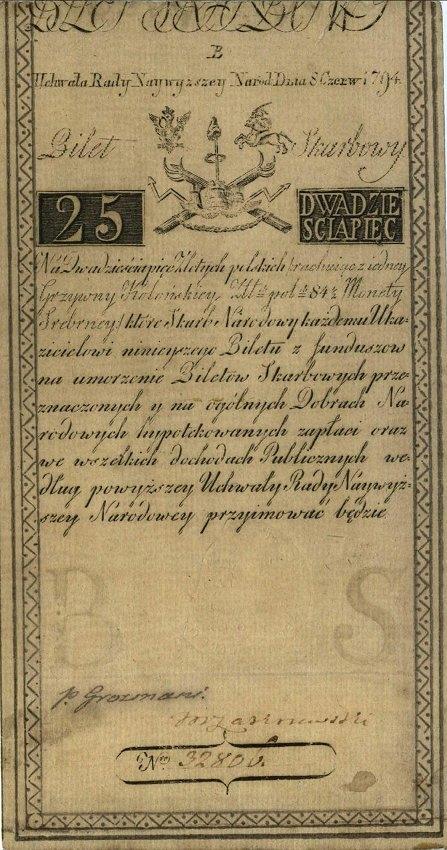 B
Uchwała Rady Naywyzszey Narod: Dnia 8 Czerw: 1794.
Bilet Skarbowy
25 DWADZIE SCIAPIEC
Na Dwadzieściapięc Złotych polskich (rachuiąc z iedney
Grzywny Kolońskiey Zł: pol: 84½ Monety
Srebrney) które Skarb Narodowy każdemu Uka-
zicielowi ninieyszego Biletu z funduszow
na umorzenie Biletów Skarbowych prze-
znaczonych y na ogólnych Dobrach Na-
rodowych hypotekowanych zapłaci oraz
we wszelkich dochodach Publicznych we-
dług powyższey Uchwały Rady Naywyż-
szey Narodowey przyimować będzie
B S
P. Grozmani.
Nro 32806.